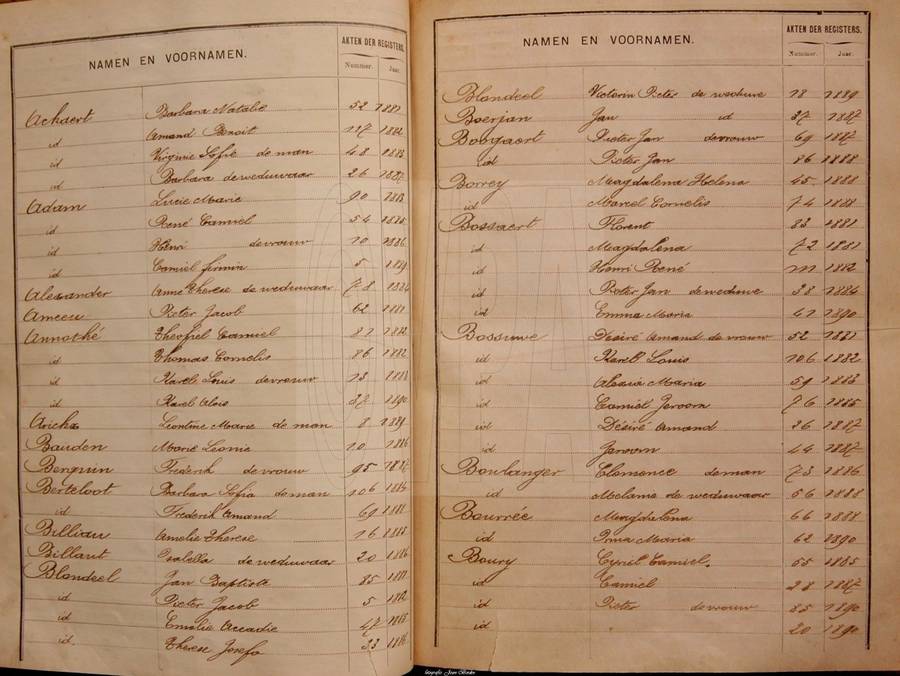 NAMEN EN VOORNAMEN. AKTEN DER REGISTERS.
Nummer. Jaar.
Achaert Barbara Natalie 52 1881
id Amand Benoit 117 1882
id Virginie Sofie de man 48 1883
id Barbara de weduwaar 26 1887
Adam Lucie Marie 90 1883
id René Camiel 54 1885
id Henri de vrouw 10 1886
id Camiel firmin 5 1889
Alexander Anne Therese de weduwaar 78 1884
Ameeu Pieter Jacob 62 1881
Annothé Theofiel Camiel 81 1882
id Thomas Cornelis 86 1882
id Karel Louis de vrouw 13 1888
id Karel Alois 37 1890
Arickx Leontine Marie de man 8 1889
Bauden Marie Leonie 10 1886
Berquin Frederik de vrouw 95 1887
Berteloot Barbara Sofia de man 106 1886
id Frederik Amand 69 1888
Billiau Amelie Therese 16 1888
Billaut Isabella de weduwaar 20 1886
Blondeel Jan Baptiste 85 1881
id Pieter Jacob 5 1882
id Emelie Arcadie 47 1885
id Therese Josefa 33 1886
NAMEN EN VOORNAMEN. AKTEN DER REGISTERS.
Nummer. Jaar.
Blondeel Victorin Pieter de weduwe 18 1889
Boerjan Jan id 37 1887
Boogaert Pieter Jan de vrouw 69 1887
id Pieter Jan 86 1888
Borrey Magdalena Helena 45 1888
id Marcel Cornelis 74 1888
Bossaert Florent 83 1881
id Magdalena 72 1881
id Henri René 111 1882
id Pieter Jan de weduwe 38 1884
id Emma Maria 41 1890
Bossuwe Désiré Amand de vrouw 52 1881
id Karel Louis 106 1882
id Alesia Maria 59 1883
id Camiel Jeroom 76 1885
id Désiré Amand 26 1887
id Jeroom 44 1887
Boulanger Clemence de man 73 1886
id Melanie de weduwaar 56 1888
Bourrée Magdalena 66 1888
id Irma Maria 62 1890
Boury Cyriel Camiel. 55 1885
id Camiel 28 1887
id Pieter de vrouw 85 1890
id 20 1890